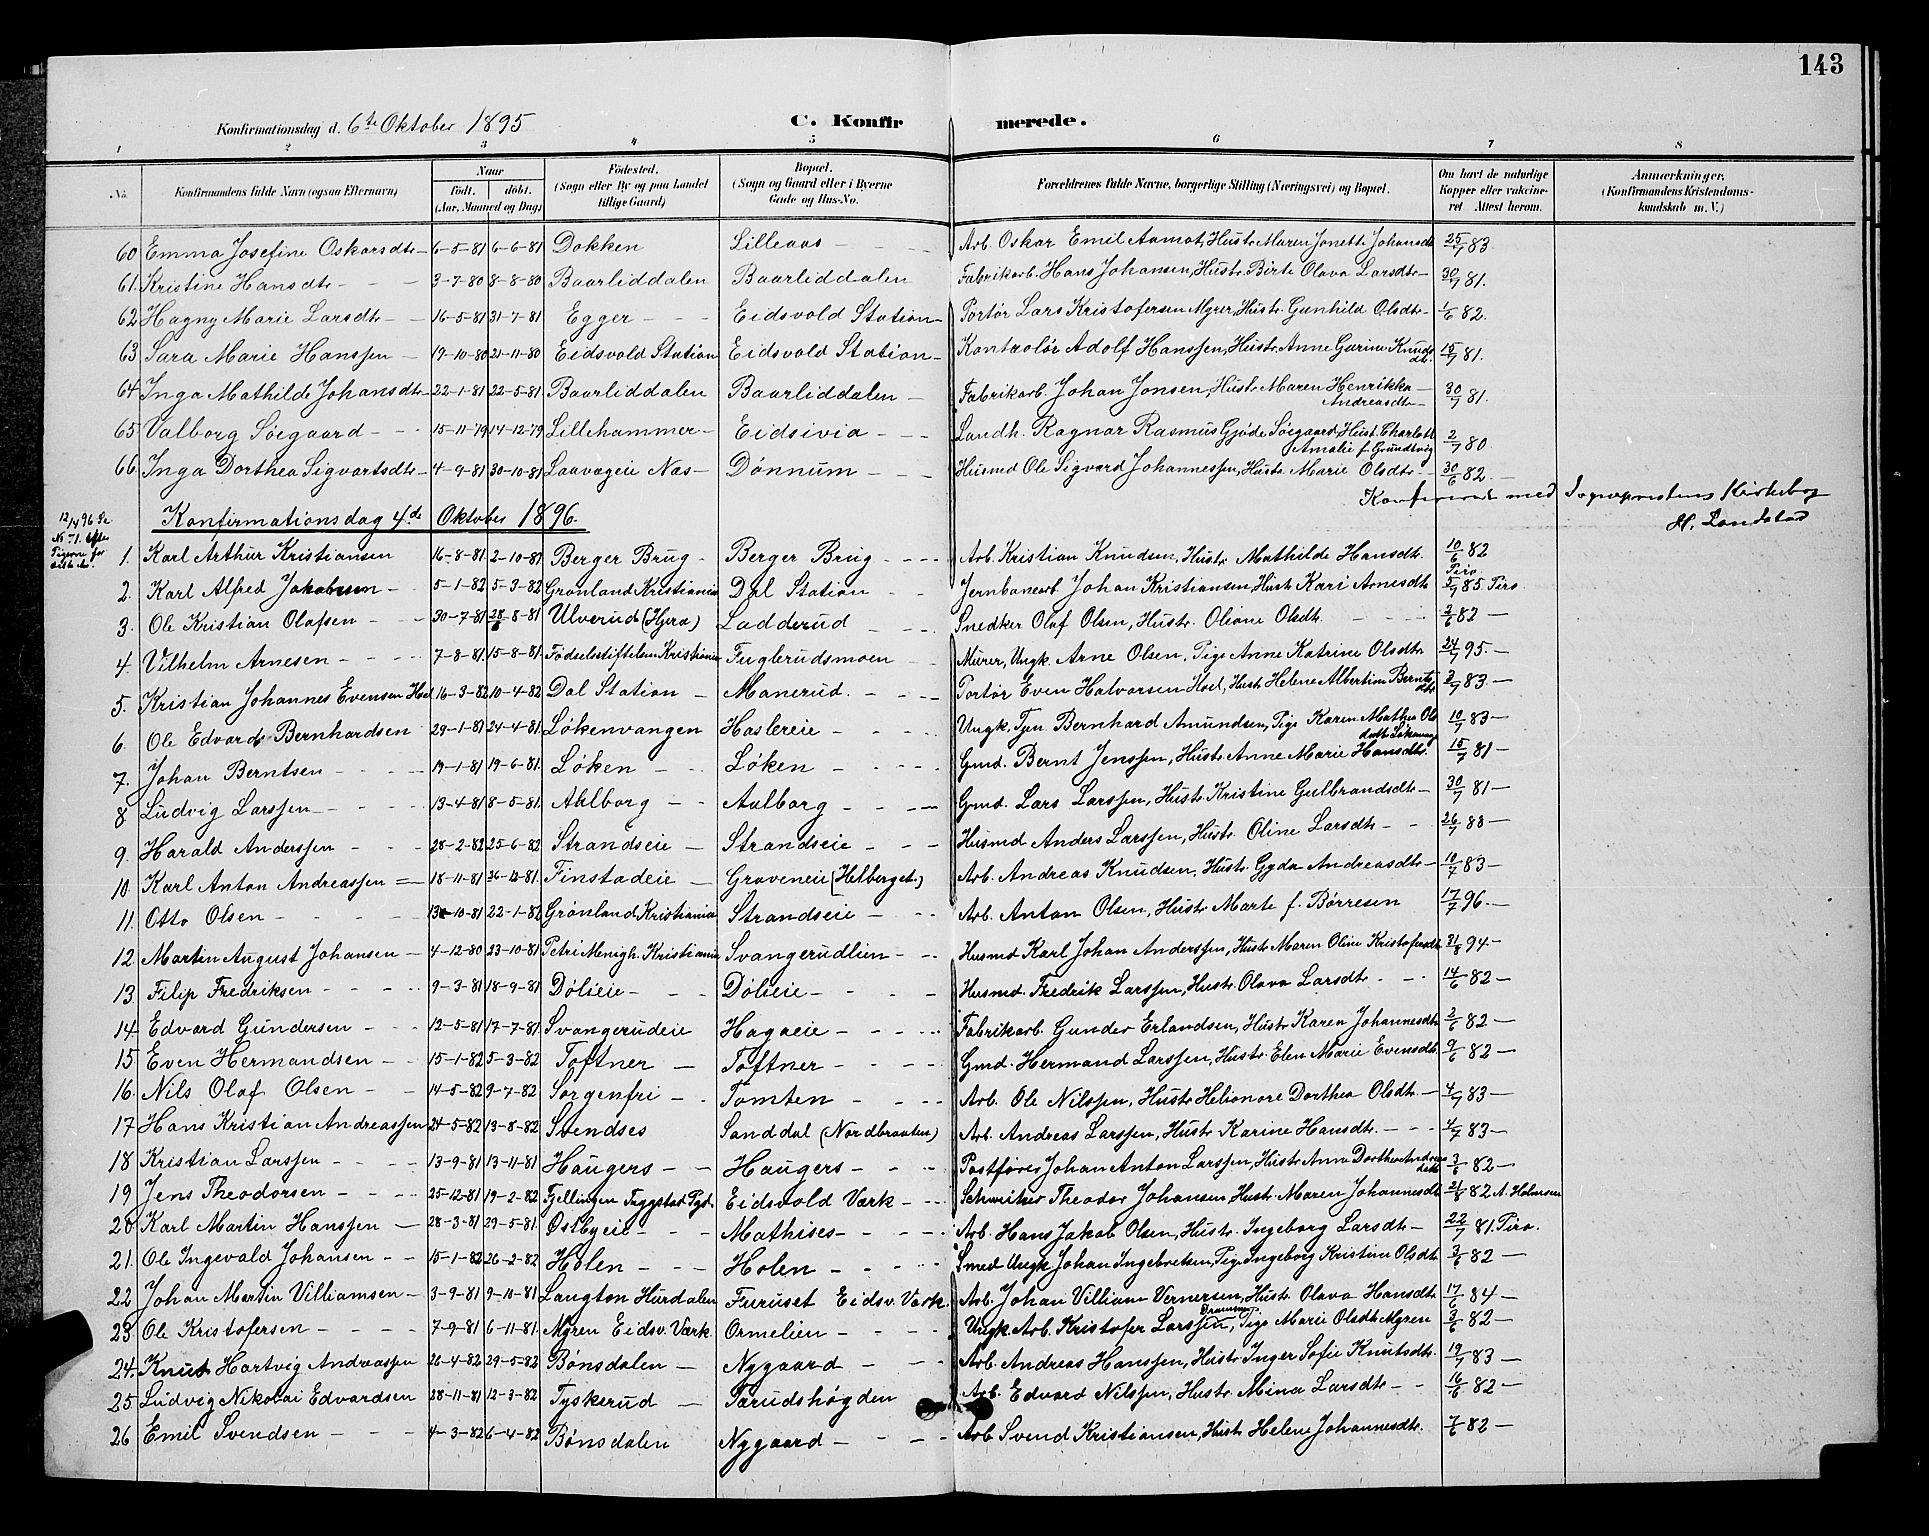 143
Konfirmationsdag d. 6te Oktober 1895 C. Konfirmerede.
1 2 3 4 5 6 7 8
No. Konfirmandens fulde Navn (ogsaa Efternavn) Naar født. døbt. (Aar, Maaned og Dag) Fødested. (Sogn eller By og paa Landet tillige Gaard) Bopæl. (Sogn og Gaard eller i Byerne Gade og Hus-No. Forældrenes fulde Navne, borgerlige Stilling (Næringsvei) og Bopæl. Om havt de naturlige Kopper eller vakcineret. Attest herom. Anmærkninger. (Konfirmandens Kristendomskundskab m. V.)
60 Emma Josefine Oskarsdtr 6-5-81 6-6-81 Dokken Lilleaas Arb. Oskar Emil Aamot, Hustr. Maren Jonette Johansdtr 25/7 83
61. Kristine Hansdtr 3-7-80 8-8-80 Baarliddalen Baarliddalen Fabrikarb. Hans Johansen, Hustr. Birte Olava Larsdtr 30/7 81.
62 Hagny Marie Larsdtr 16-5-81 31-7-81 Egger Eidsvold Station Portør Lars Kristofersen Myrer, Hustr. Gunhild Olsdtr 1/6 82.
63 Sara Marie Hanssen 19-10-80 21-11-80 Eidsvold Station Eidsvold Station Kontrolør Adolf Hanssen, Hustr. Anne Gurine Knudsdtr. 15/7 81.
64 Inga Mathilde Johansdtr 22-1-81 22-5-81 Baarliddalen Baarliddalen Fabrikarb. Johan Jonsen, Hustr. Maren Henrikka Andreasdtr 30/7 81.
65 Valborg Søegaard 15-11-79 14-12-79 Lillehammer Eidsivia Landh. Ragnar Rasmus Gjøde Søegaard, Hust. Charlott Amalie f. Grundtvig 2/7 80
66. Inga Dorthea Sigvartsdtr 4-9-81 30-10-81 Laavegeie Næs Dønnum Husmd Ole Sigvard Johannessen, Hustr. Marie Olsdtr 30/6 82.
Konfereret med Sogneprestens Kirkebog
H. Landstad
12/4 96 Se No 71. efter Pigerne for
Konfirmationsdag 4de Oktober 1896.
1. Karl Arthur Kristiansen 16-8-81 2-10-81 Berger Brug Berger Brug Arb. Kristian Knudsen, Hustr. Mathilde Hansdtr. 10/6 82 Piro
2. Karl Alfred Jakobsen 5-1-82 5-3-82 Grønland Kristiania Dal Station Jernbanearb Johan Kristiansen, Hustr Kari Arnesdtr 5/7 85. Piro
3. Ole Kristian Olafsen 30-7-81 28/8-81 Ulverud (Hjera) Ladderud Snedker Olaf Olsen, Hustr. Oliane Olsdtr 2/6 82
4. Vilhelm Arnesen 7-8-81 15-8-81 Fødselsstiftelsen Kristiania Fuglerudsmoen Murer, Ungk. Arne Olsen, Pige Anne Katrine Olsdtr 24/7 95.
5. Kristian Johannes Evensen Hoel 16-3-82 10-4-82 Dal Station Manerud. Portør Even Halvorsen Hoel, Hustr. Helene Albertine Berntsdtr 2/7 83
6. Ole Edvard Bernhardsen 29-1-81 24-4-81 Løkenvangen Haslereie Ungk. Tjen Bernhard Amundsen, Pige Karen Mathea Olsdatter Løkenvang 10/7 83
7. Johan Berntsen 19-1-81 19-6-81. Løken Løken Gmd. Bernt Jenssen, Hustr Anne Marie Hansdtr. 15/7 81
8 Ludvig Larssen 13-4-81 8-5-81 Ahlborg Aalborg Gmd. Lars Larssen, Hustr. Kristine Gulbrandsdtr 30/7 81
9. Harald Anderssen 28-2-82 25-6-82 Strandseie Strandseie Husmd Anders Larssen, Hustr. Oline Larsdtr 26/7 88
10. Karl Anton Andreassen 18-11-81 26-12-81 Finstadeie Graveneie (Helberget.) Arb. Andreas Knudsen, Hustr. Gyda Andreasdtr 10/7 83
11. Otto Olsen 13-10-81 22-1-82 Grønland Kristiania Strandseie Arb. Anton Olsen, Hustr Marte f. Børresen 17/7 96.
12. Martin August Johansen 4-12-80 23-10-81 Petri Menigh. Kristiania Svangerudlien Husmd Karl Johan Anderssen, Hustr. Maren Oline Kristofersdtr 31/8 94
13. Filip Fredriksen 9-3-81 18-9-81 Dølieie Dølieie Husmd. Fredrik Larssen, Hustr. Olava Larsdtr 14/6 82
14. Edvard Gundersen 12-5-81 17-7-81 Svangerudeie Hagaeie Fabrikarb. Gunder Erlandsen, Hustr Karen Johannesdtr 2/6 82
15. Even Hermandsen 15-1-82 5-3-82 Toftner Toftner Gmd. Hermand Larssen, Hustr. Elen Marie Evensdtr. 9/6 82
16. Nils Olaf Olsen 14-5-82 9-7-82 Sorgenfri Tomten Arb. Ole Nilssen, Hustr Helionore Dorthea Olsdtr 4/7 83
17 Hans Kristian Andreassen 24-5-82 13-8-82 Stendses Sanddal (Nordbraaten) Arb. Andreas Larssen, Hustr Karine Hansdtr. 4/7 83
18 Kristian Larssen 13-9-81 13-11-81 Haugers Haugers Postfører Johan Anton Larssen, Hustr Anne Dorthea Andreasdtr 3/6 82
19 Jens Theodorsen 25-12-81 19-2-82 Fjellingen Teggstad Eidsvold Værk Schweitser Theodor Johansen, Hustr. Maren Johannesdtr 21/8 82 A. Holmsen
20. Karl Martin Hanssen 28-3-81 29-5-81. Østbyeie Mathises Arb. Hans Jakob Olsen, Hustr. Ingeborg Larsdtr 22/7 81. Piro.
21. Ole Ingevald Johansen 15-1-82 26-2-82 Holen Holen Smed Ungk Johan Ingebretsen, Pige Ingeborg Kristine Olsdtr 3/6 82
22 Johan Martin Villiamsen 3-9-81 9-10-81 Langton Hurdalen Furuset Eidsv. Værk. Arb. Johan Villiam Vernersen, Hustr. Olava Hansdtr 17/6 84
23. Ole Kristofersen 7-9-81 6-11-81. Myren Eidsv. Værk. Ormelien Ungk. Arb. Kristofer Larssen, Pige Marie Olsdtr Myren 3/6 82
24. Knut Hartvig Andreassen 26-4-82 29-5-82 Bønsdalen Nygaard Arb. Andreas Hanssen, Hustr Inger Sofie Knutsdtr. 19/7 83
25 Ludvig Nikolai Edvardsen 28-11-81 12-3-82 Tyskerud Tærudshøgden Arb. Edvard Nilssen, Hustr. Mina Larsdtr 16/6 82
26 Emil Svendsen 4-3-82 6-4-82 Bønsdalen Nygaard Arb Svend Kristiansen, Hustr Helene Johannesdtr. 7/6 82